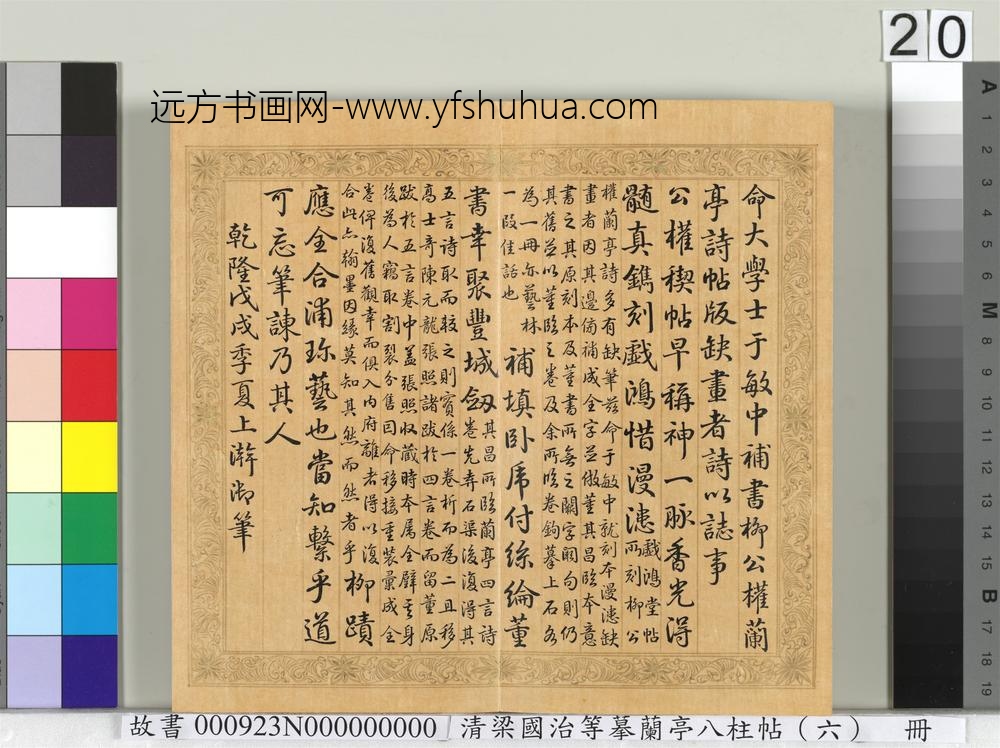 20
远方书画网-www.yfshuhua.com
命大學士于敏中補書柳公權蘭
亭詩帖版缺畫者詩以誌事
公權稧帖早稱神一脉香光得
髓真鐫刻戲鴻惜漫漶
戲鴻堂帖
所刻柳公
權蘭亭詩多有缺筆茲命于敏中就刻本漫漶缺
畫者因其邊傍補成全字並倣董其昌臨本意
書之其原刻本及董書所無之闕字闕句則仍
其舊並以董臨之卷及余所臨卷鉤摹上石各
為一冊亦藝林
一段佳話也
補填卧虎付絲綸董
書幸聚豐城劔
其昌所臨蘭亭四言詩
卷先弆石渠後復得其
五言詩取而較之則實係一卷析而為二且移
高士奇陳元龍張照諸跋於四言卷而留董原
跋於五言卷中蓋張照收藏時本屬全璧其身
後為人竊取割裂分售因命移接重裝彙成全
卷俾復舊觀幸而俱入內府離者得以復
合此亦翰墨因緣莫知其然而然者乎
柳蹟
應全合浦珍藝也當知繫乎道
可忘筆諫乃其人
乾隆戊戌季夏上澣御筆
A 1 2 3 4 5 6 M 8 9 10 11 12 13 14 15 B 17 18 19
故書 000923N000000000 清梁國治等摹蘭亭八柱帖（六） 冊